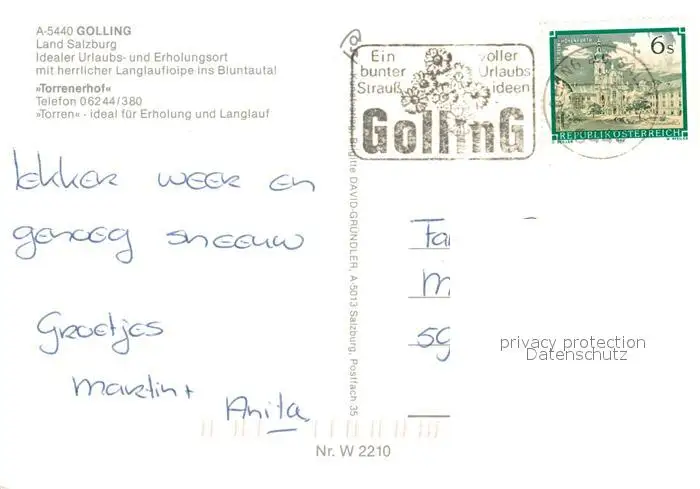 A-5440 GOLLING
Land Salzburg
Idealer Urlaubs- und Erholungsort
mit herrlicher Langlaufloipe ins Bluntautal
»Torrenerhof«
Telefon 06244/380
»Torren« - ideal für Erholung und Langlauf
Ein voller
bunter Urlaubs
Strauß ideen
GollinG
6s
REPUBLIK ÖSTERREICH
lekker weer en
genoeg sneeuw
Groetjes
Martin +
Anita
Kunstverlag Brigitte DAVID-GRÜNDLER, A-5013 Salzburg, Postfach 35
Fa
M
59
privacy protection
Datenschutz
Nr. W 2210